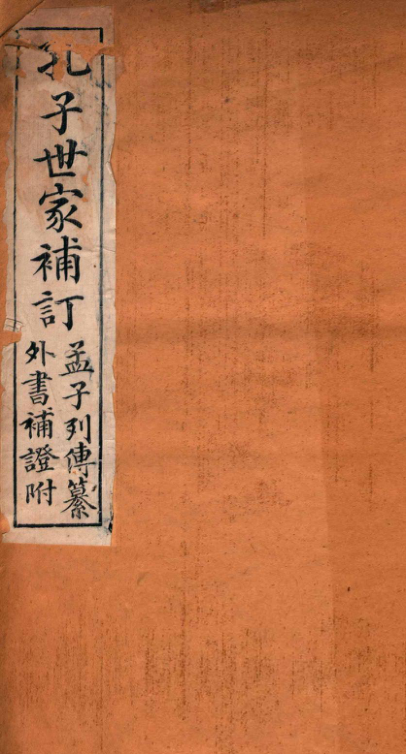 孔子世家補訂
孟子列傳纂
外書補證附